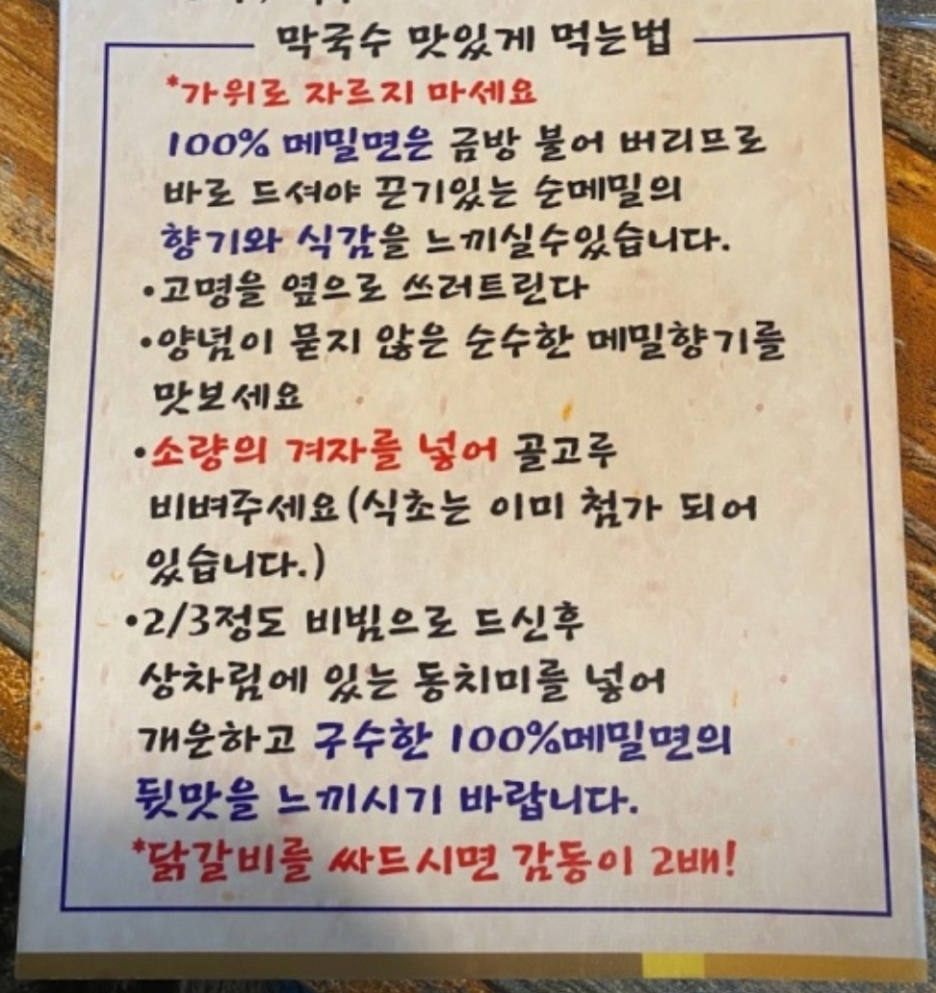 막국수 맛있게 먹는법
*가위로 자르지 마세요
100% 메밀면은 금방 불어 버리므로
바로 드셔야 끈기있는 순메밀의
향기와 식감을 느끼실수있습니다.
•고명을 옆으로 쓰러트린다
•양념이 묻지 않은 순수한 메밀향기를
맛보세요
•소량의 겨자를 넣어 골고루
비벼주세요(식초는 이미 첨가 되어
있습니다.)
•2/3정도 비빔으로 드신후
상차림에 있는 동치미를 넣어
개운하고 구수한 100%메밀면의
뒷맛을 느끼시기 바랍니다.
*닭갈비를 싸드시면 감동이 2배!